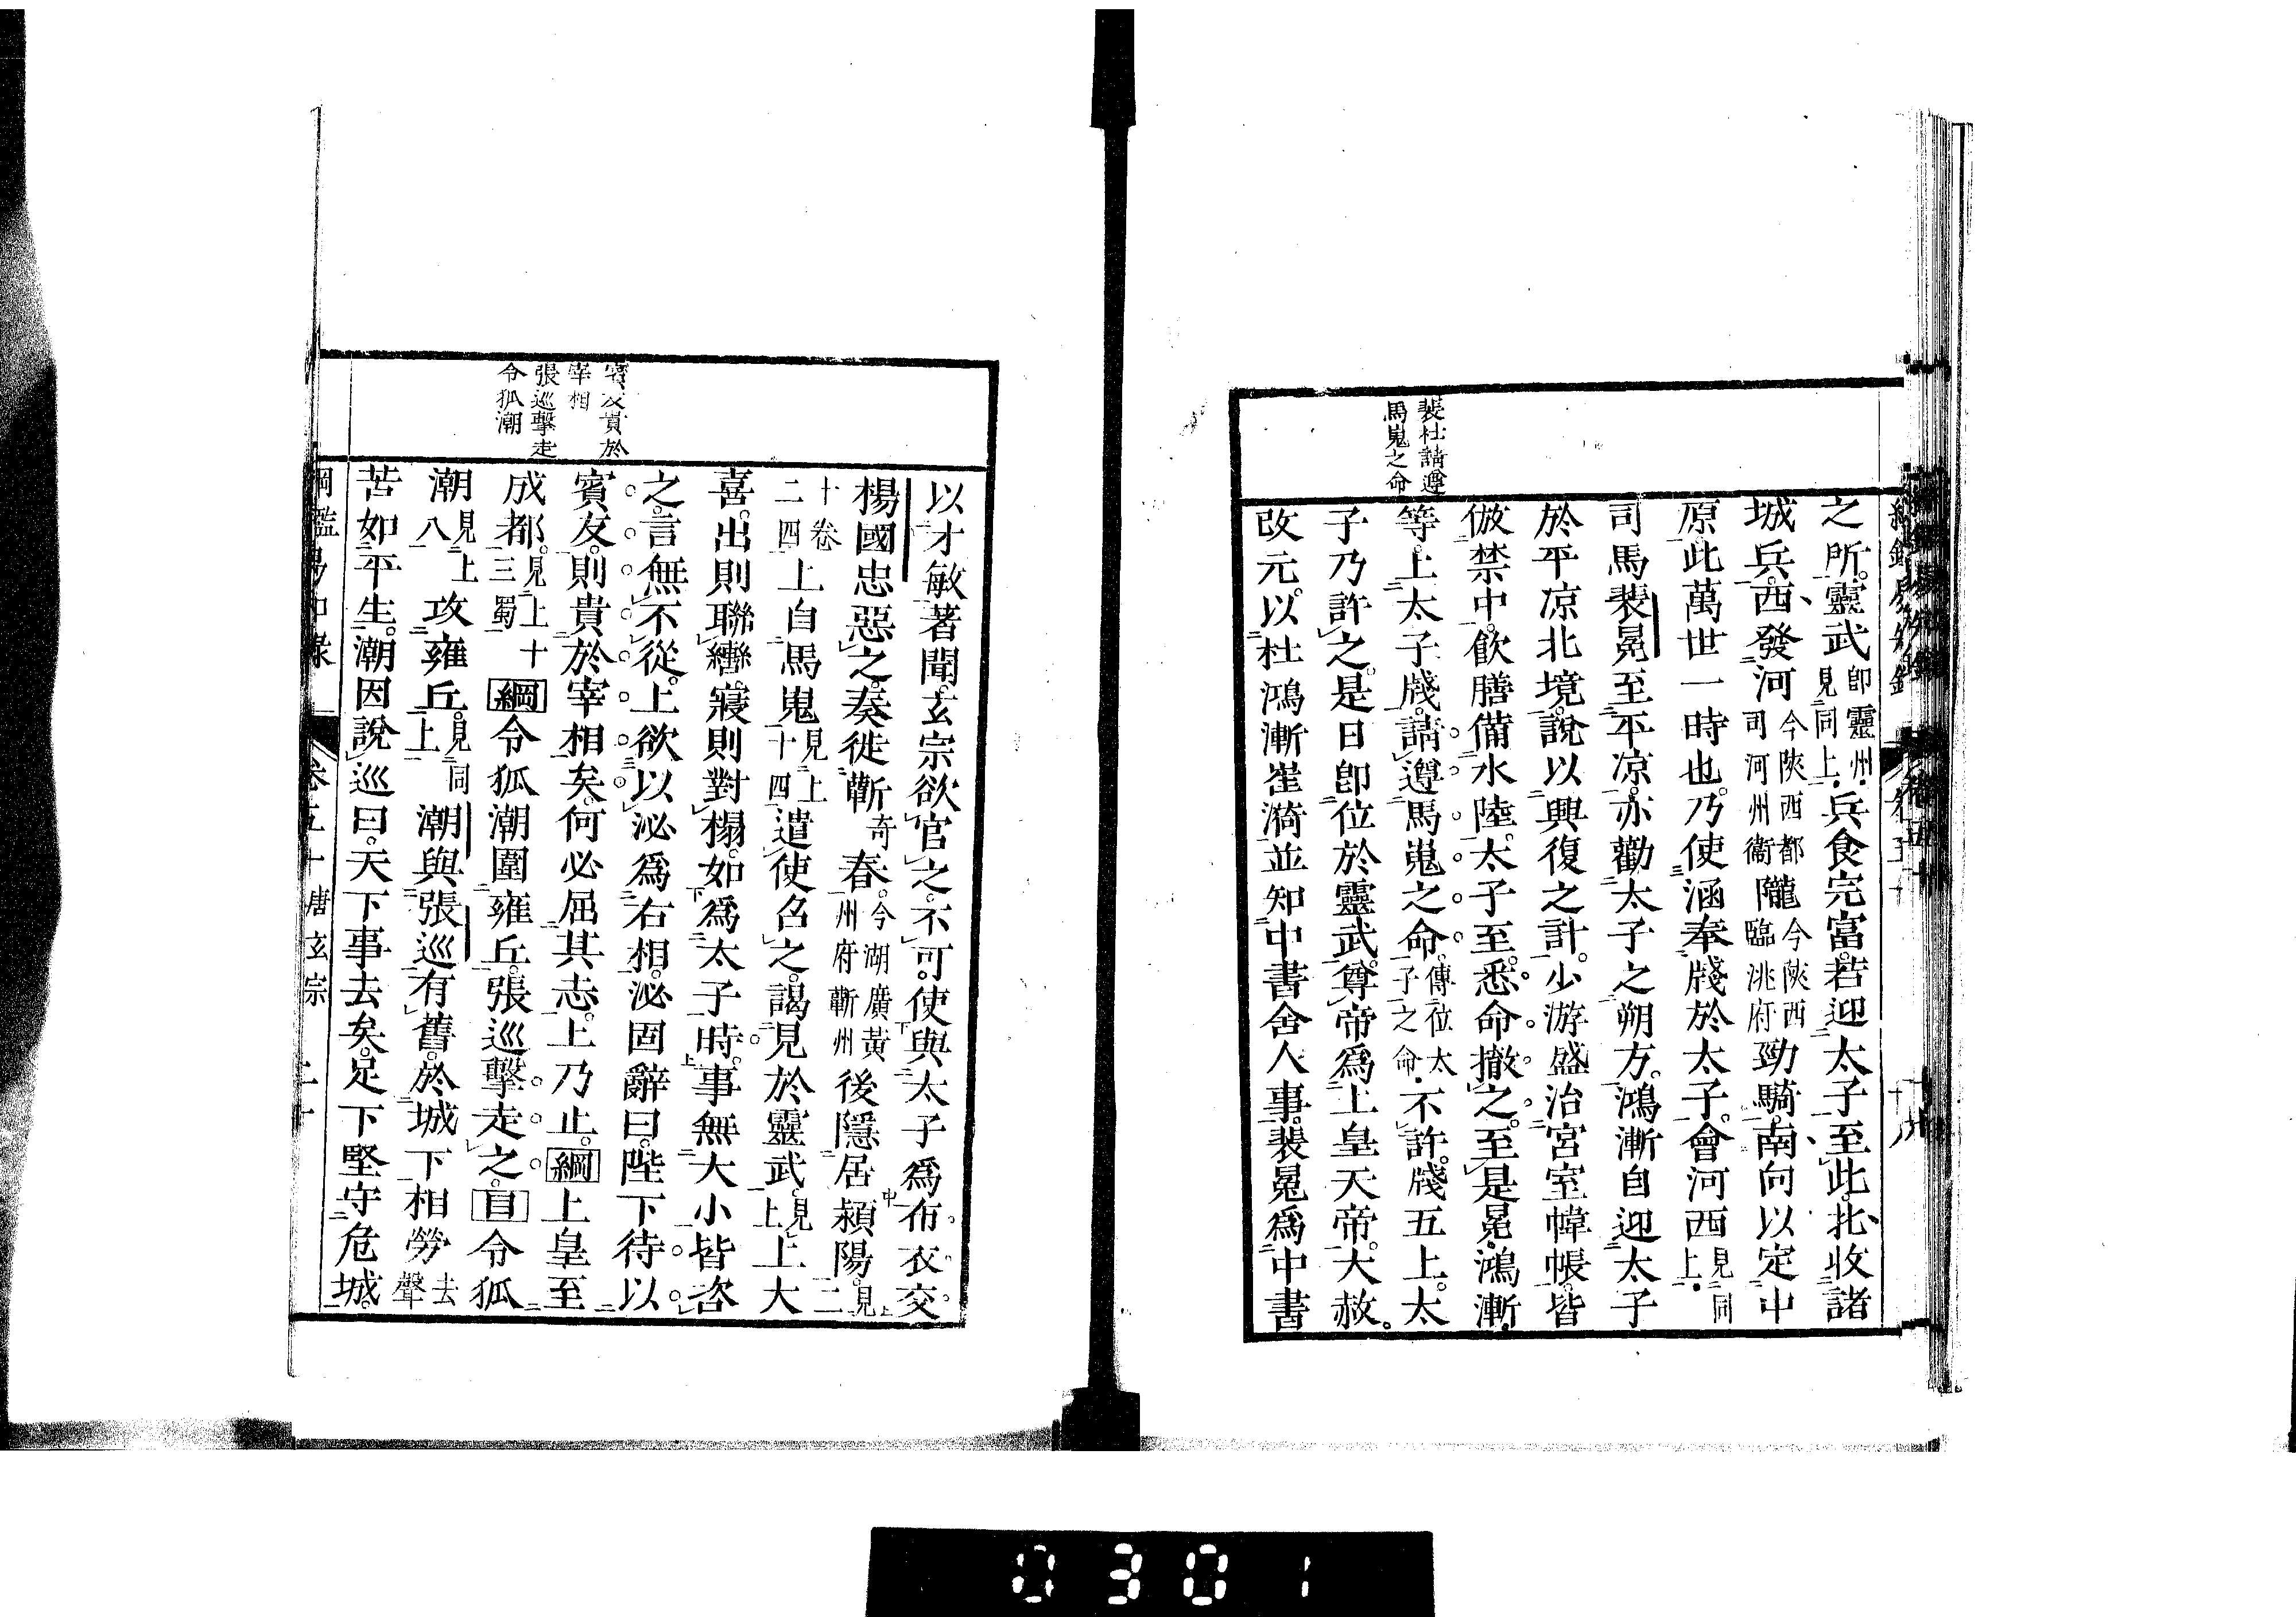 裴杜請遵
馬嵬之命
之所。靈武即靈州。見同上。兵食完富。若迎太子至此。北收諸
城兵。西發河今陝西都司河州衛隴今陝西臨洮府勁騎。南向以定中
原。此萬世一時也。乃使涵奉牋於太子。會河西見同上。
司馬裴冕至平凉。亦勸太子之朔方。鴻漸自迎太子
於平凉北境。說以興復之計。少游盛治宮室幃帳。皆
倣禁中。飲膳備水陸。太子至。悉命撤之。至是冕。鴻漸
等。上太子牋。請遵馬嵬之命。傳位太子之命。不許。牋五上。太
子乃許之。是日即位於靈武。尊帝爲上皇天帝。大赦。
改元。以杜鴻漸崔漪並知中書舍人事。裴冕爲中書
賓友貴於
宰相
張巡擊走
令狐潮
以才敏著聞。玄宗欲官之。不可。使與太子爲布衣交
楊國忠惡之。奏徙蘄奇春。今湖廣黃州府蘄州後隱居潁陽。見上二
十卷二四上自馬嵬見上十四遣使召之。謁見於靈武。見上上大
喜。出則聯轡。寢則對榻。如爲太子時。事無大小皆咨
之。言無不從。上欲以泌爲右相。泌固辭曰。陛下待以
賓友。則貴於宰相矣。何必屈其志。上乃止。綱上皇至
成都。見上十三蜀綱令狐潮圍雍丘。張巡擊走之。目令狐
潮見上八攻雍丘。見同上潮與張巡有舊。於城下相勞去聲
苦如平生。潮因說巡曰。天下事去矣。足下堅守危城。
綱鑑易知錄
卷五十唐玄宗
二十
0301